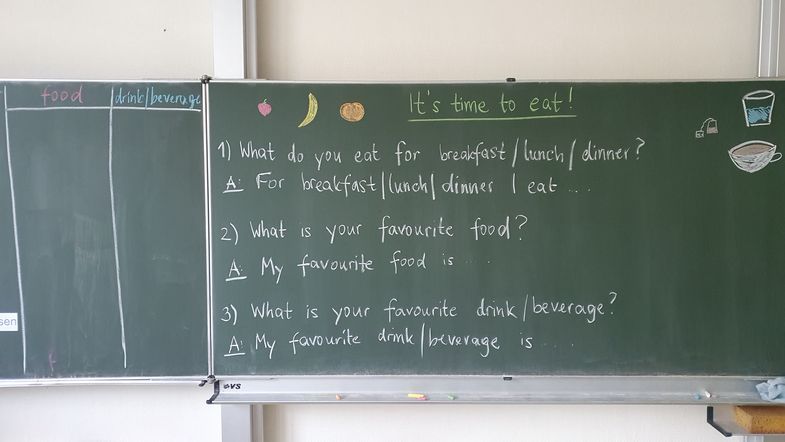 food
drink/beverage
It's time to eat!
1) What do you eat for breakfast/lunch/dinner?
A: For breakfast/lunch/dinner I eat ...
2) What is your favourite food?
A: My favourite food is ...
3) What is your favourite drink/beverage?
A: My favourite drink/beverage is ...
sen
VS